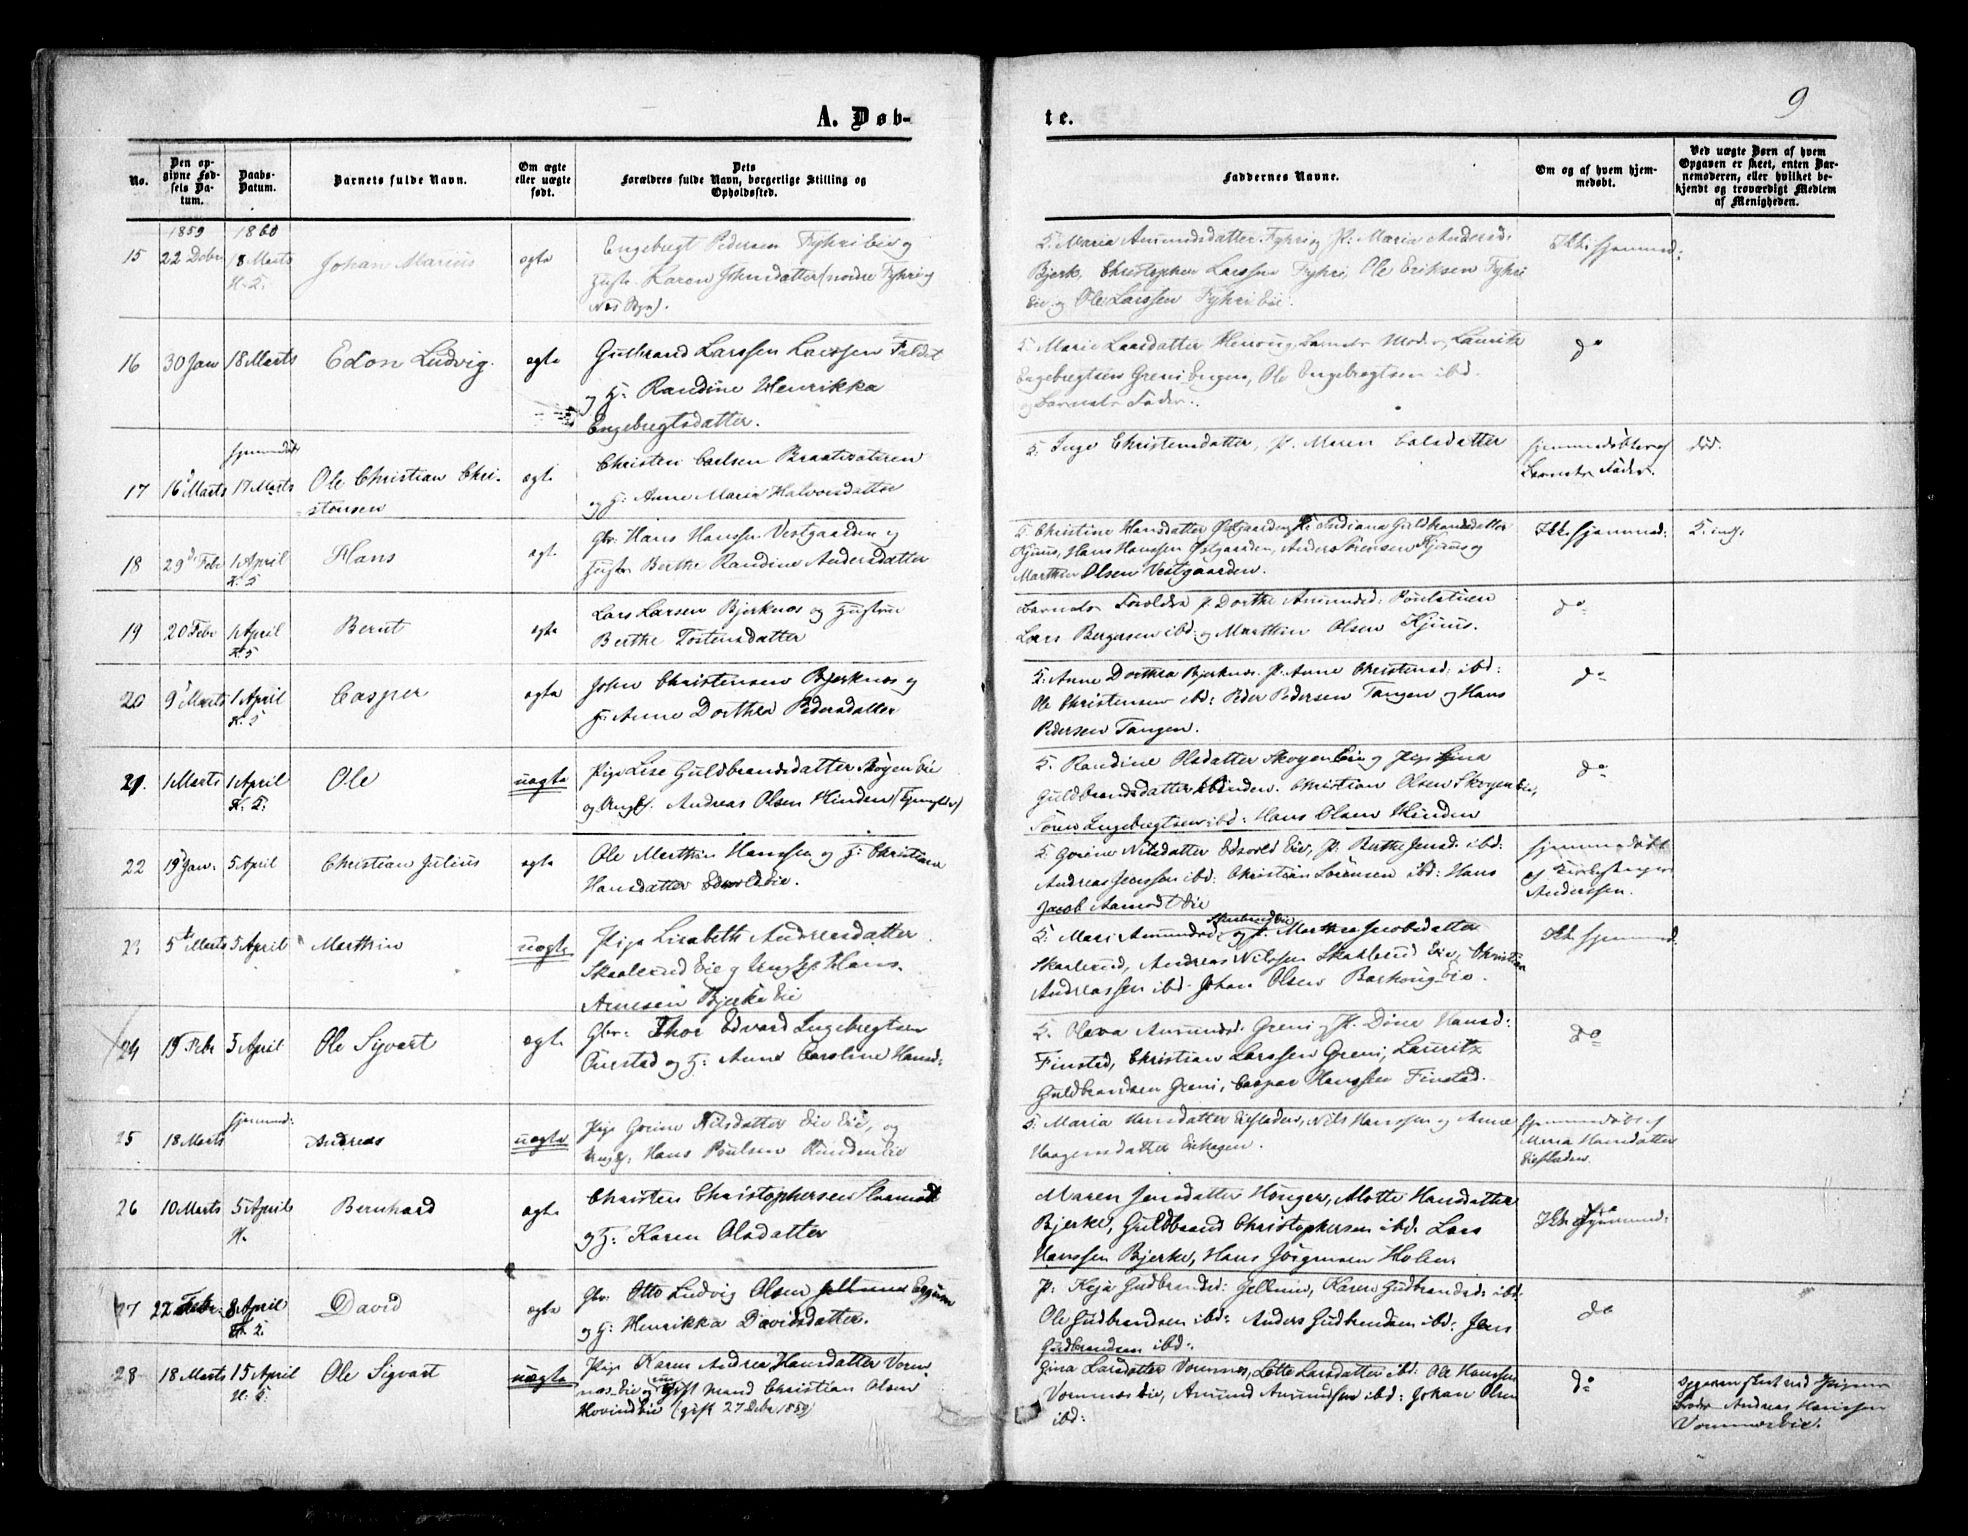 9
A. Døb-
te.
No.
Den op-
givne Fød-
sels Da-
tum.
Daabs-
Datum.
Barnets fulde Navn.
Om ægte
eller uægte
født.
Dets
Forældres fulde Navn, borgerlige Stilling og
Opholdssted.
Faddernes Navne.
Om og af hvem hjem-
medøbt.
Ved uægte Børn af hvem
Opgaven er skeet, enten Bar-
nemoderen, eller hvilket be-
kjendt og troværdigt Medlem
af Menigheden.
1859
1860
15
22 Debr
18 Marts
Johan Marius
ægte
Engebregt Pedersen Fyhri Eie og
Karen (nordre Fyhri
Nes Præ).
Maria Amundsdatter Fyhri P: Maria Andersd:
Bjerk, Christopher Larssen Fyhri, Ole Eriksen Fyhri
Eie og Ole Larssen Fyhri Eie.
Ikke hjemmed:
16
30 Jan
18 Marts
Edon Ludvig.
ægte
Gulbrand Larssen Larssen
og H: Randine Henrikka
Engebregtsdatter.
Marie Larsdatter Barnets Mod. Lauritz
Engebregtsen Greni Engen, Ole Engebregtsen ibd.
og Barnets Fader.
do
17
16 Marts
hjemmedøbt
17 Marts
Ole Christian Chri-
stensen
ægte
Christen Carlsen Braatesateren
og H: Anne Maria Halvorsdatter
Inge Christensdatter, P. Maren Carlsdatter
hjemmedøbt af
Barnets Fader.
død.
18
29 Febr
1 April
K. 5
Hans
ægte
Gbr. Hans Hanssen Vestgaarden og
Hustru Berthe Randine Andersdatter
Christine Hansdatter Østgaarden, P. Indiana Guldbrandsdatter
Kjuus, Hans Hanssen Østgaarden, Anders Sørensen Kjuus og
Marthin Olsen Vestgaarden.
Ikke hjemmed:
19
20 Febr
1 April
K. 5
Bernt
ægte
Lars Larsen Bjerknes og Hustrue
Berthe Tostensdatter
Barnets Forældre P. Dorthe Amundsd: Poulstuen
Lars Bergersen ibd: og Marthin Olsen Kjuus.
do
20
9 Marts
1 April
K. 5
Casper
ægte
John Christensen Bjerknes og
H: Anne Dorthea Pedersdatter
Anne Dorthea Bjerknes, P. Anne Christensd: ibd:
Ole Christensen ibd: Peder Pedersen Tangen og Hans
Pedersen Tangen.
do
21.
1 Marts
1 April
Ole
uægte
Pige Lise Guldbrandsdatter Skogen Eie
og Ungk. Andreas Olsen Hinden
Randine Olsdatter Skogen Eie og Pige Gina
Guldbrandsdatter Hinden. Christian Olsen Skogen Eie,
Søren Engebregtsen ibd: Hans Olsen Hinden
do
22
19 Jan.
5 April
Christian Julius
ægte
Ole Marthin Hanssen og H: Christiane
Hansdatter Edsvold Eie.
Gorine Nilsdatter Edsvold Eie, P. Berthe Jensd: ibd:
Andreas Jenssen ibd: Christian Sørensen ibd: Hans
Jacob Aamodt Eie
hjemmedøbt
af Kirkesanger
Anderssen.
23
5 Marts
5 April
Marthin
uægte
Pige Lisabeth Andreasdatter
Skarlund Eie og Ungk. Hans
Arnesen Bjerke Eie
Mari Amundsd. og P. Marthea Jacobsdatter
Skarlund, Andreas Nilssen Skarlund Eie, Christian
Andreassen ibd. Johan Olsen Barhoug Eie.
Ikke hjemmed.
24
15 Febr
5 April
Ole Sigvart
ægte
Gbr: Thor Edvard Engebregtsen
Finstad og H: Anne Caroline Hansd:
Oleva Amundsd. Greni, P. Dine Hansd:
Finstad, Christian Larssen Greni, Lauritz
Guldbrandsen Greni, Caspar Hanssen Finstad.
do
25
18 Marts
hjemmed:
Andreas
uægte
Pige Gorine Nilsdatter Eie Eie, og
Ungk. Hans Poulsen Rundens Eie
Maria Hansdatter Eiestaden, Nils Hanssen og Anne
Haagensdatter
hjemmedøbt af
Maria Hansdatter
Eiestaden.
26
10 Marts
5 April
H.
Bernhard
ægte
Christen Christophersen
og H: Karen Olsdatter
Maren Jensdatter Hønger, Mathe Hansdatter
Bjerke, Guldbrand Christophersen ibd: Lars
Hanssen Bjerke, Hans Jørgensen Holen.
Ikke hjemmed:
27
22 Febr:
8 April
David
ægte
Gbr. Otto Ludvig Olsen
og H: Henrikka Davidsdatter.
P. Kaja Gudbrandsd: Gellmie, Karen Gudbrandsd: ibd.
Ole Gudbrandsen ibd: Anders Gudbrandsen ibd: Jens
Gudbrandsen ibd:
do
28
18 Marts
15 April
H. 5.
Ole Sigvart
uægte
Pige Karen Andrea Hansdatter Vorm-
næs Eie og gift Mand Christian Olsen
Hovind Eie (gift 27 Debr 1859)
Gina Larsdatter Vormnes, Lotte Larsdatter ibd: Ole Hanssen
Vormnes Eie, Amund Amundsen ibd: Johan Olsen
ibd:
do
Opgaven skeet ved Pigens
Broder Andreas Hanssen
Vormnes Eie.